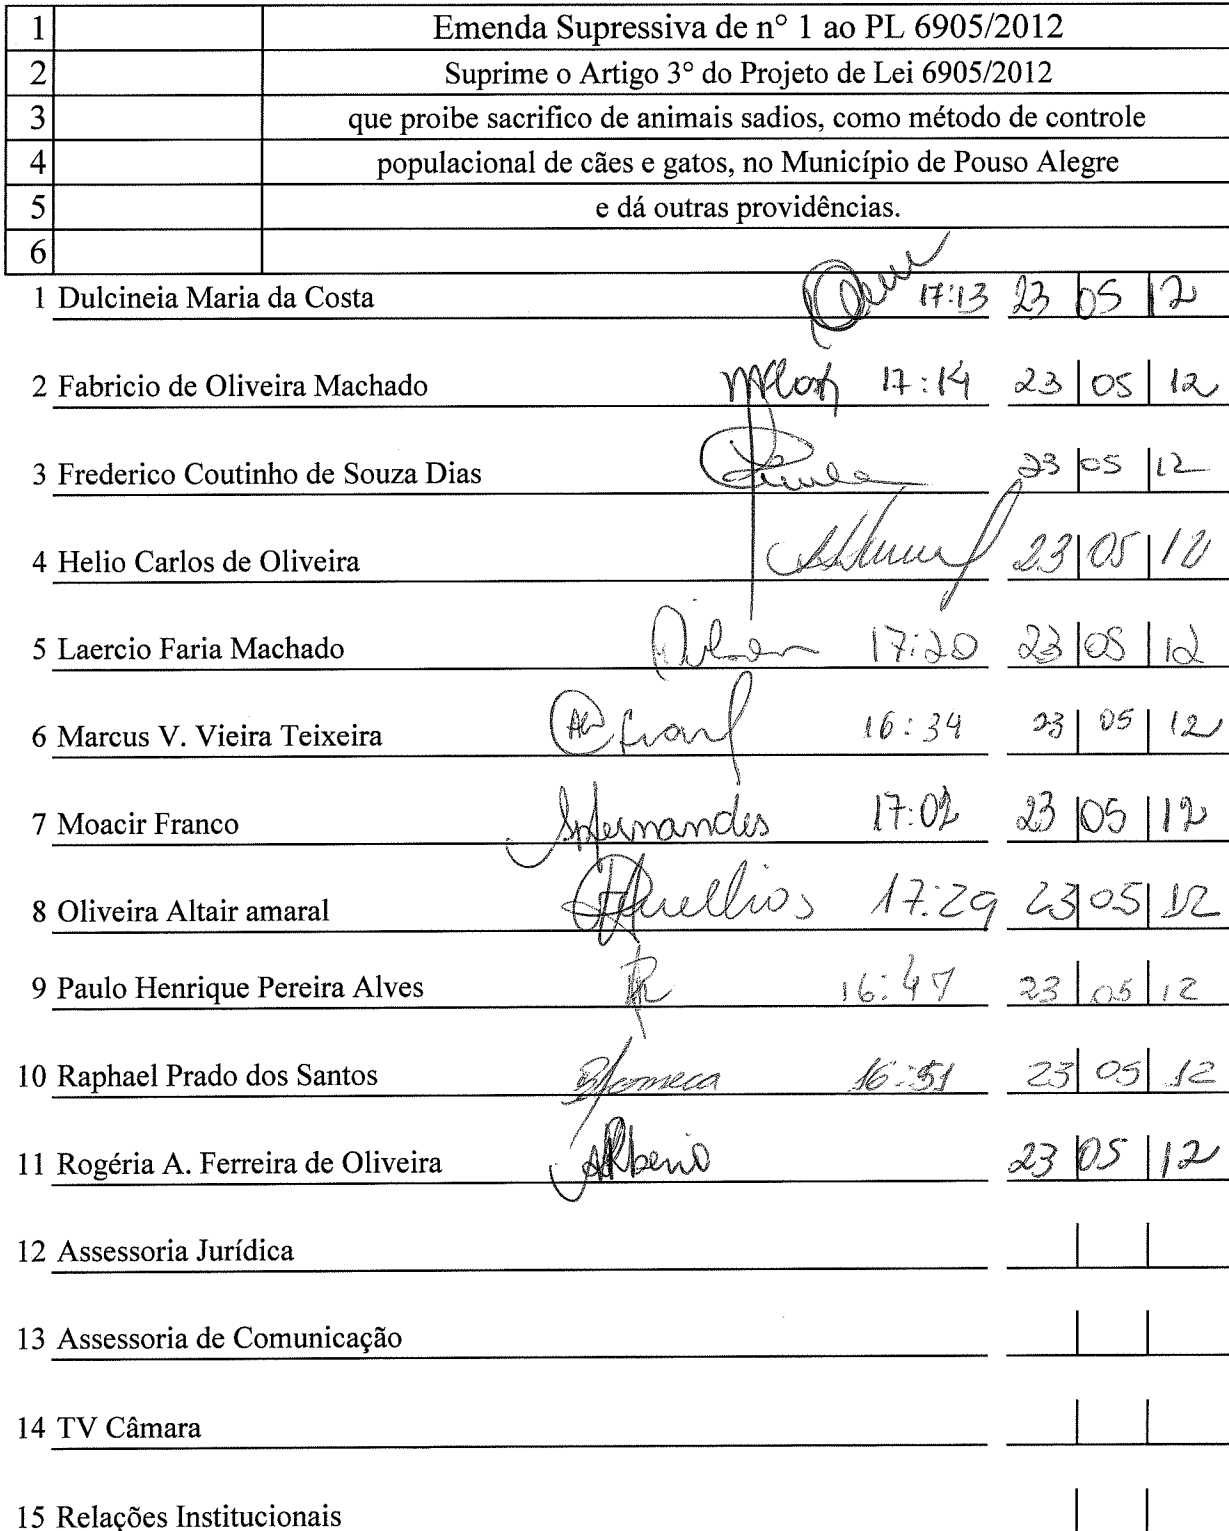 1 Emenda Supressiva de n° 1 ao PL 6905/2012
2 Suprime o Artigo 3° do Projeto de Lei 6905/2012
3 que proibe sacrifico de animais sadios, como método de controle
4 populacional de cães e gatos, no Município de Pouso Alegre
5 e dá outras providências.
6
1 Dulcineia Maria da Costa 17:13 23 05 12
2 Fabricio de Oliveira Machado 17:14 23 05 12
3 Frederico Coutinho de Souza Dias 23 05 12
4 Helio Carlos de Oliveira 23 05 12
5 Laercio Faria Machado 17:20 23 05 12
6 Marcus V. Vieira Teixeira 16:34 23 05 12
7 Moacir Franco 17:02 23 05 12
8 Oliveira Altair amaral 17:29 23 05 12
9 Paulo Henrique Pereira Alves 16:47 23 05 12
10 Raphael Prado dos Santos 16:51 23 05 12
11 Rogéria A. Ferreira de Oliveira 23 05 12
12 Assessoria Jurídica
13 Assessoria de Comunicação
14 TV Câmara
15 Relações Institucionais